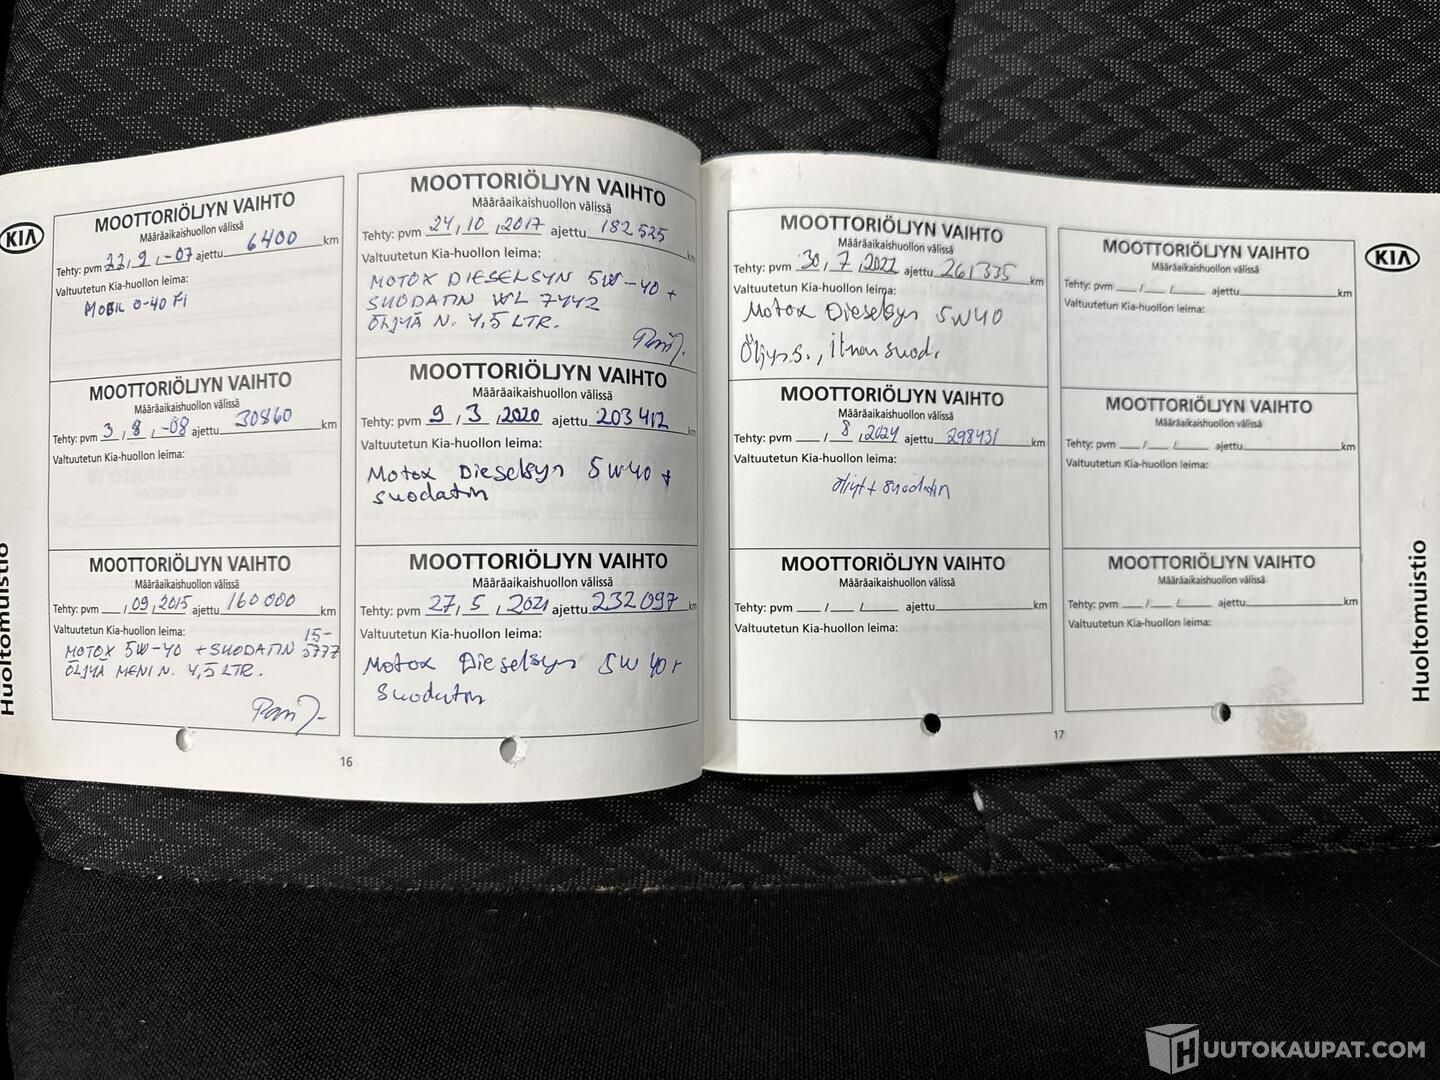 KIA
MOOTTORIÖLJYN VAIHTO
Määräaikaishuollon välissä
Tehty: pvm 22, 9, -07 ajettu 6400 km
Valtuutetun Kia-huollon leima:
MOBIL 0-40 FI
MOOTTORIÖLJYN VAIHTO
Määräaikaishuollon välissä
Tehty: pvm 3, 8, -08 ajettu 30860 km
Valtuutetun Kia-huollon leima:
MOOTTORIÖLJYN VAIHTO
Määräaikaishuollon välissä
Tehty: pvm __/09,2015 ajettu 160 000 km
Valtuutetun Kia-huollon leima: 15-
MOTOX 5W-40 + SUODATIN 5777
ÖLJYÄ MENI N. 4,5 LTR.
Huoltomuistio
MOOTTORIÖLJYN VAIHTO
Määräaikaishuollon välissä
Tehty: pvm 24, 10, 2017 ajettu 182 525 km
Valtuutetun Kia-huollon leima:
MOTOX DIESELSYN 5W-40 +
SUODATIN WL 7442
ÖLJYÄ N. 4,5 LTR.
MOOTTORIÖLJYN VAIHTO
Määräaikaishuollon välissä
Tehty: pvm 9, 3, 2020 ajettu 203 412 km
Valtuutetun Kia-huollon leima:
Motox Dieselsyn 5W40 +
suodatin
MOOTTORIÖLJYN VAIHTO
Määräaikaishuollon välissä
Tehty: pvm 27, 5, 2021 ajettu 232 097 km
Valtuutetun Kia-huollon leima:
Motox Dieselsyn 5W40+
Suodatin
16
MOOTTORIÖLJYN VAIHTO
Määräaikaishuollon välissä
Tehty: pvm 30, 7, 2022 ajettu 261335 km
Valtuutetun Kia-huollon leima:
Motox Dieselsyn 5W40
Öljyn s., ilman suod.
MOOTTORIÖLJYN VAIHTO
Määräaikaishuollon välissä
Tehty: pvm __/ 8, 2024 ajettu 298431 km
Valtuutetun Kia-huollon leima:
öljyt + suodatin
MOOTTORIÖLJYN VAIHTO
Määräaikaishuollon välissä
Tehty: pvm __/__/____ ajettu ____ km
Valtuutetun Kia-huollon leima:
MOOTTORIÖLJYN VAIHTO
Määräaikaishuollon välissä
Tehty: pvm __/__/____ ajettu ____ km
Valtuutetun Kia-huollon leima:
MOOTTORIÖLJYN VAIHTO
Määräaikaishuollon välissä
Tehty: pvm __/__/____ ajettu ____ km
Valtuutetun Kia-huollon leima:
MOOTTORIÖLJYN VAIHTO
Määräaikaishuollon välissä
Tehty: pvm __/__/____ ajettu ____ km
Valtuutetun Kia-huollon leima:
KIA
Huoltomuistio
17
HUUTOKAUPAT.COM